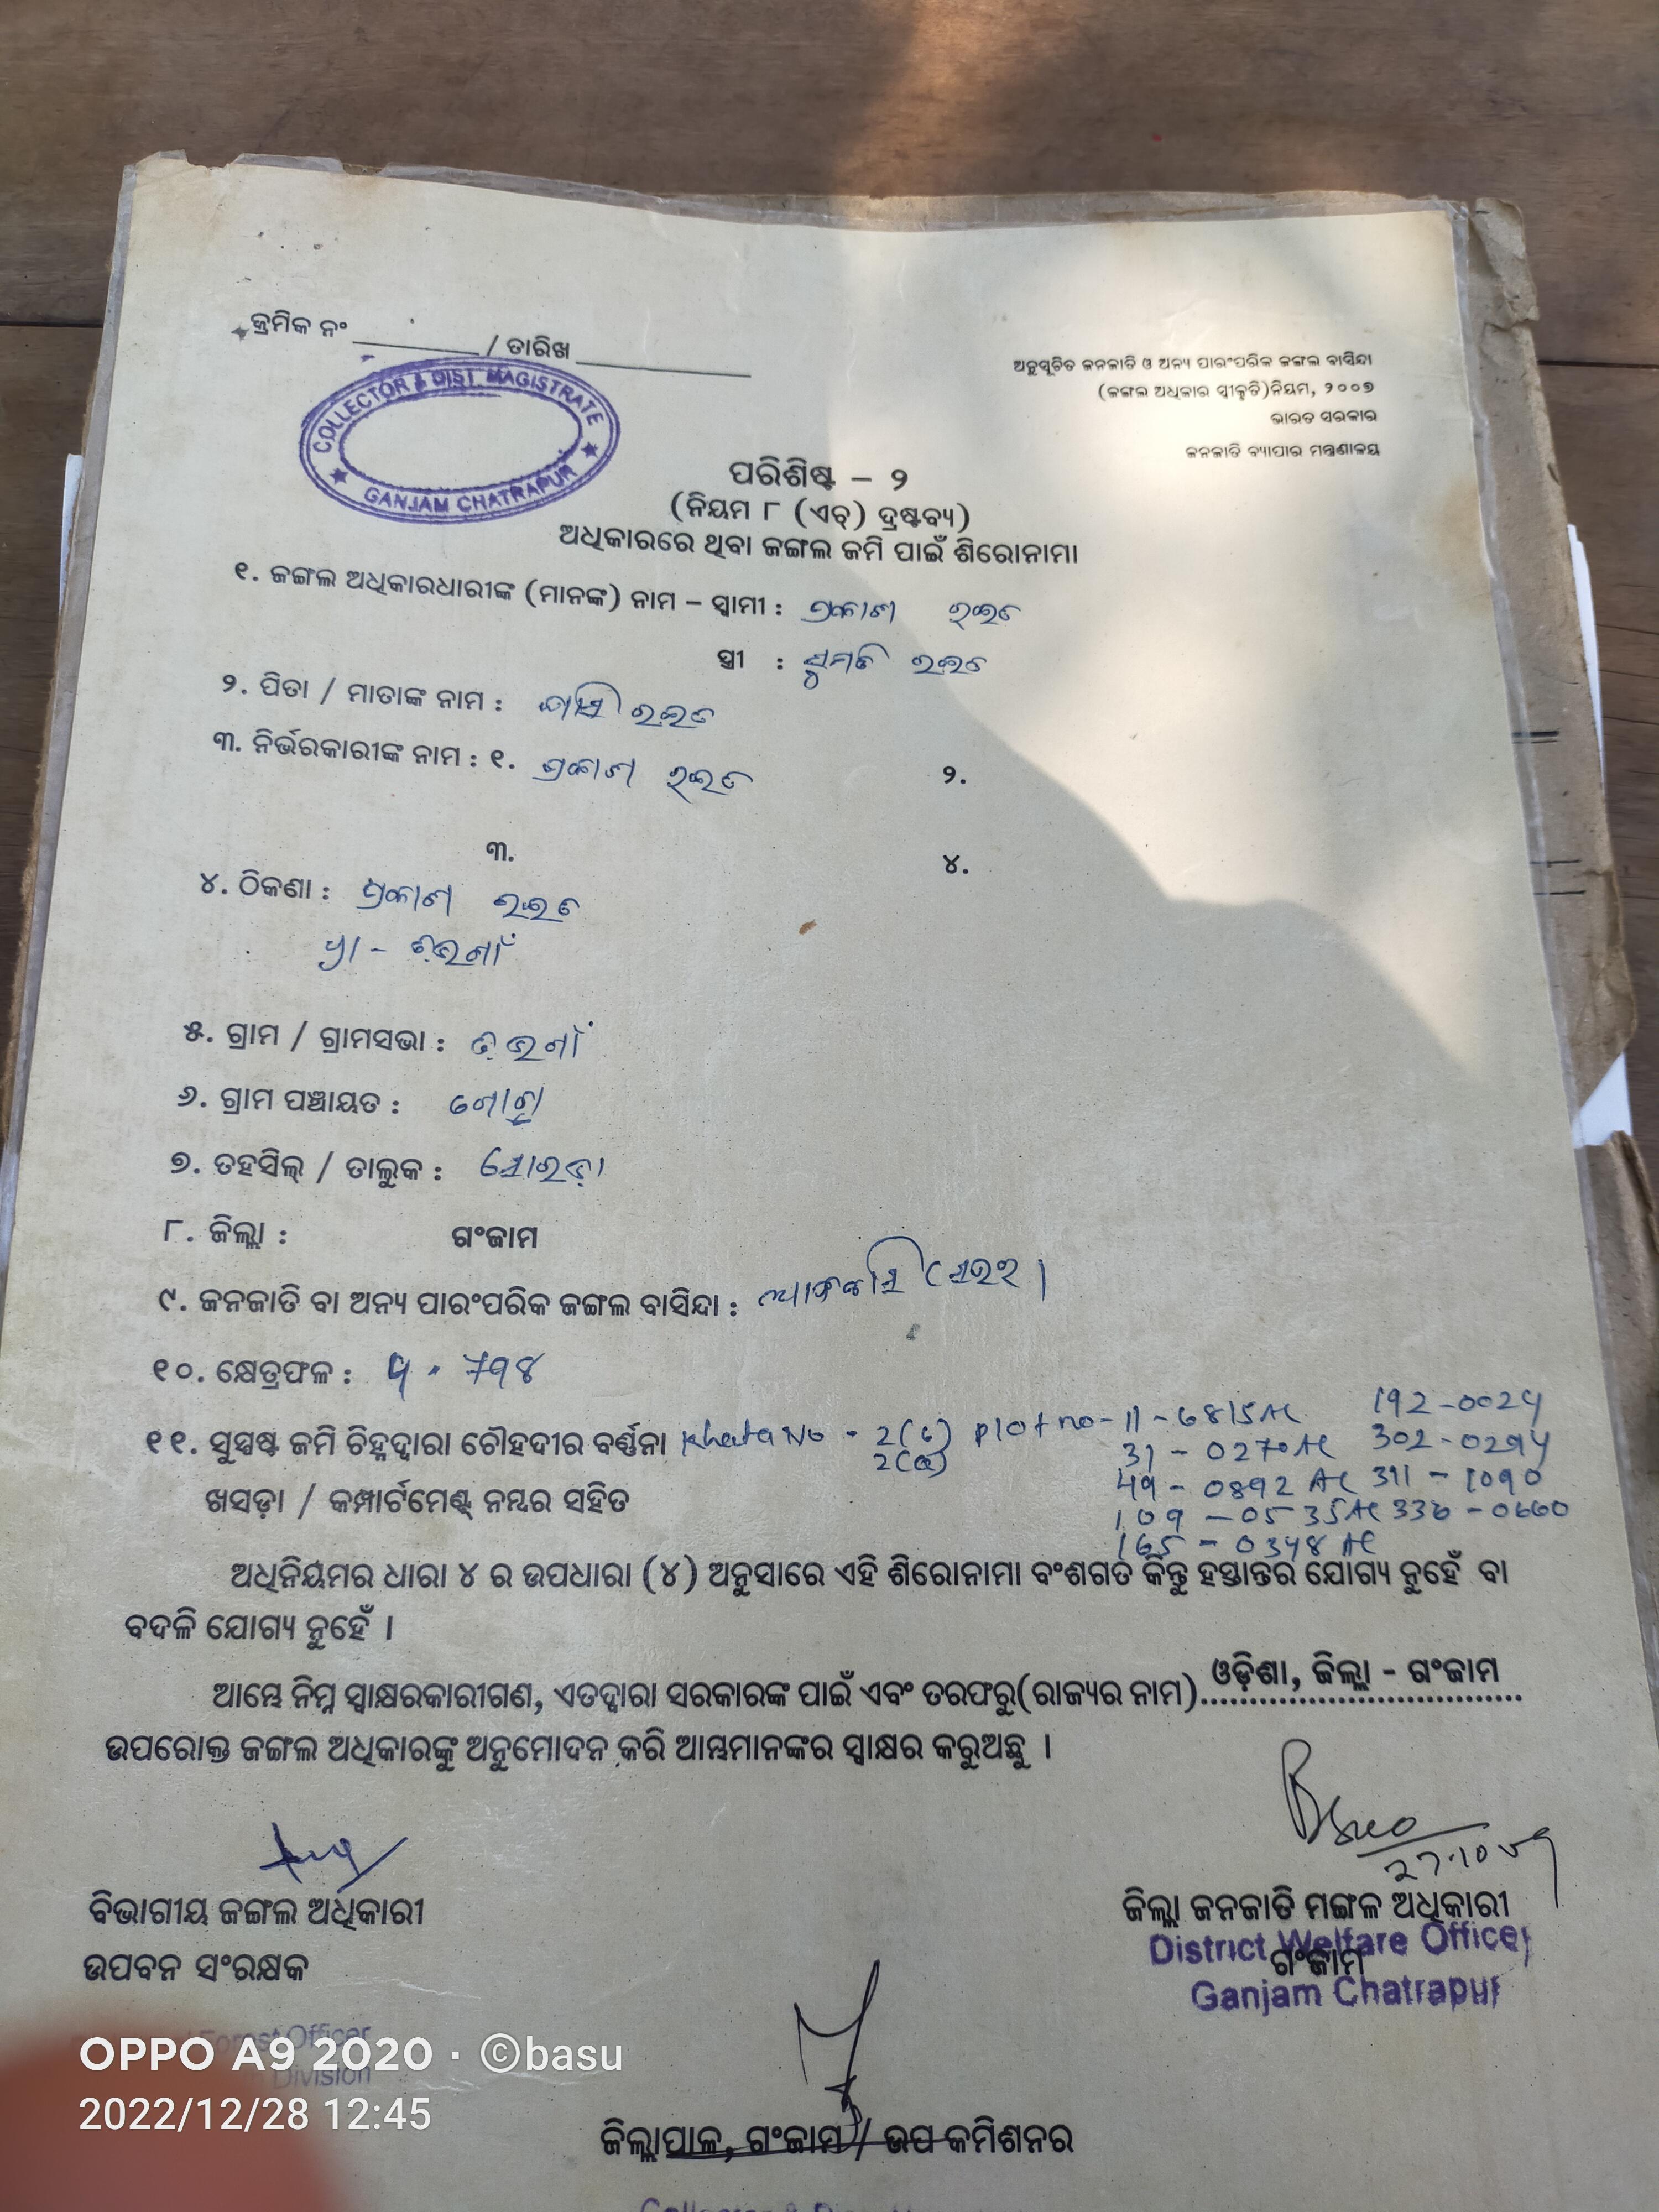 କ୍ରମିକ ନଂ ________ / ତାରିଖ ____________
COLLECTOR & DIST. MAGISTRATE
GANJAM CHATRAPUR
ଅନୁସୂଚିତ ଜନଜାତି ଓ ଅନ୍ୟ ପାରଂପରିକ ଜଙ୍ଗଲ ବାସିନ୍ଦା
(ଜଙ୍ଗଲ ଅଧିକାର ସ୍ୱୀକୃତି)ନିୟମ, ୨୦୦୭
ଭାରତ ସରକାର
ଜନଜାତି ବ୍ୟାପାର ମନ୍ତ୍ରଣାଳୟ
ପରିଶିଷ୍ଟ – ୨
(ନିୟମ ୮ (ଏଚ୍) ଦ୍ରଷ୍ଟବ୍ୟ)
ଅଧିକାରରେ ଥିବା ଜଙ୍ଗଲ ଜମି ପାଇଁ ଶିରୋନାମା
୧. ଜଙ୍ଗଲ ଅଧିକାରଧାରୀଙ୍କ (ମାନଙ୍କ) ନାମ – ସ୍ୱାମୀ : ପ୍ରକାଶ ରଇତ
ସ୍ତ୍ରୀ : ସୁମତି ରଇତ
୨. ପିତା / ମାତାଙ୍କ ନାମ : ରଇତ
୩. ନିର୍ଭରକାରୀଙ୍କ ନାମ : ୧. ପ୍ରକାଶ ରଇତ ୨.
୩. ୪.
୪. ଠିକଣା : ପ୍ରକାଶ ରଇତ
୫. ଗ୍ରାମ / ଗ୍ରାମସଭା :
୬. ଗ୍ରାମ ପଞ୍ଚାୟତ :
୭. ତହସିଲ୍ / ତାଲୁକ : ସୋରଡ଼ା
୮. ଜିଲ୍ଲା : ଗଂଜାମ
୯. ଜନଜାତି ବା ଅନ୍ୟ ପାରଂପରିକ ଜଙ୍ଗଲ ବାସିନ୍ଦା : ଆଦିବାସି
୧୦. କ୍ଷେତ୍ରଫଳ :
୧୧. ସୁସ୍ପଷ୍ଟ ଜମି ଚିହ୍ନଦ୍ୱାରା ଚୌହଦୀର ବର୍ଣ୍ଣନା Khata No - 2(b) plot no - 11 - 6815 Ac 192 - 0024
2(a) 31 - 0270 Ac 302 - 0294
ଖସଡ଼ା / କମ୍ପାର୍ଟମେଣ୍ଟ ନମ୍ବର ସହିତ 49 - 0892 Ac 311 - 1090
109 - 0535 Ac 336 - 0660
165 - 0348 Ac
ଅଧିନିୟମର ଧାରା ୪ ର ଉପଧାରା (୪) ଅନୁସାରେ ଏହି ଶିରୋନାମା ବଂଶଗତ କିନ୍ତୁ ହସ୍ତାନ୍ତର ଯୋଗ୍ୟ ନୁହେଁ ବା
ବଦଳି ଯୋଗ୍ୟ ନୁହେଁ ।
ଆମ୍ଭେ ନିମ୍ନ ସ୍ୱାକ୍ଷରକାରୀଗଣ, ଏତଦ୍ୱାରା ସରକାରଙ୍କ ପାଇଁ ଏବଂ ତରଫରୁ(ରାଜ୍ୟର ନାମ) ଓଡ଼ିଶା, ଜିଲ୍ଲା - ଗଂଜାମ
ଉପରୋକ୍ତ ଜଙ୍ଗଲ ଅଧିକାରଙ୍କୁ ଅନୁମୋଦନ କରି ଆମ୍ଭମାନଙ୍କର ସ୍ୱାକ୍ଷର କରୁଅଛୁ ।
27.10.09
ବିଭାଗୀୟ ଜଙ୍ଗଲ ଅଧିକାରୀ
ଉପବନ ସଂରକ୍ଷକ
Forest Officer
Division
ଜିଲ୍ଲା ଜନଜାତି ମଙ୍ଗଳ ଅଧିକାରୀ
District Welfare Officer
ଗଂଜାମ
Ganjam Chatrapur
ଜିଲ୍ଲାପାଳ, ଗଂଜାମ / ଉପ କମିଶନର
OPPO A9 2020 · ©basu
2022/12/28 12:45